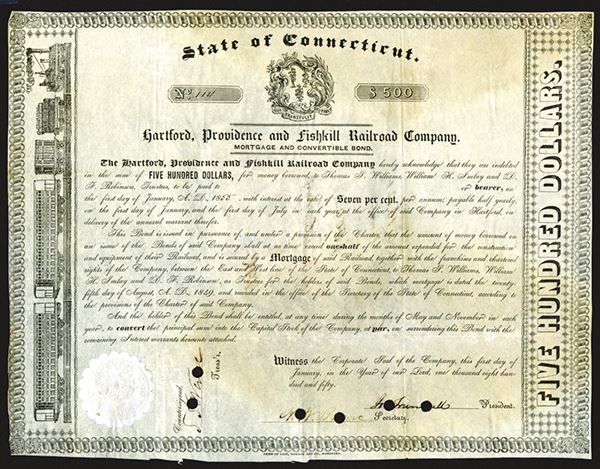 State of Connecticut.
No. 114
$500
TRANSTULIT
Hartford, Providence and Fishkill Railroad Company.
MORTGAGE AND CONVERTIBLE BOND.
The Hartford, Providence and Fishkill Railroad Company hereby acknowledge that they are indebted
in the sum of FIVE HUNDRED DOLLARS, for money borrowed, to Thomas S. Williams, William H. Imlay and D.
F. Robinson, Trustees, to be paid to or bearer, on
the first day of January, A. D., 1855, with interest at the rate of Seven per cent. per annum, payable half yearly,
on the first day of January, and the first day of July in each year, at the office of said Company in Hartford, on
delivery of the annexed warrant therefor.
This Bond is issued in pursuance of, and under a provision of the Charter, that the amount of money borrowed on
an issue of the Bonds of said Company shall at no time exceed one half of the amount expended for the construction
and equipment of their Railroad, and is secured by a Mortgage of said Railroad together with the franchises and chartered
rights of the Company, between the East and West line of the State of Connecticut, to Thomas S. Williams, William
H. Imlay and D. F. Robinson, as Trustees for the holders of said Bonds, which mortgage is dated the twenty-
fifth day of August, A. D., 1849, and recorded in the office of the Secretary of the State of Connecticut, according to
the provisions of the Charter of said Company.
And the holder of this Bond shall be entitled, at any time during the months of May and November in each
year, to convert the principal sum into the Capital Stock of the Company, at par, on surrendering this Bond with the
remaining Interest warrants hereunto attached.
Witness the Corporate Seal of the Company, this first day of
January, in the Year of our Lord, one thousand eight hun-
dred and fifty.
President.
Secretary.
Countersigned,
Treas'r.
FIVE HUNDRED DOLLARS.